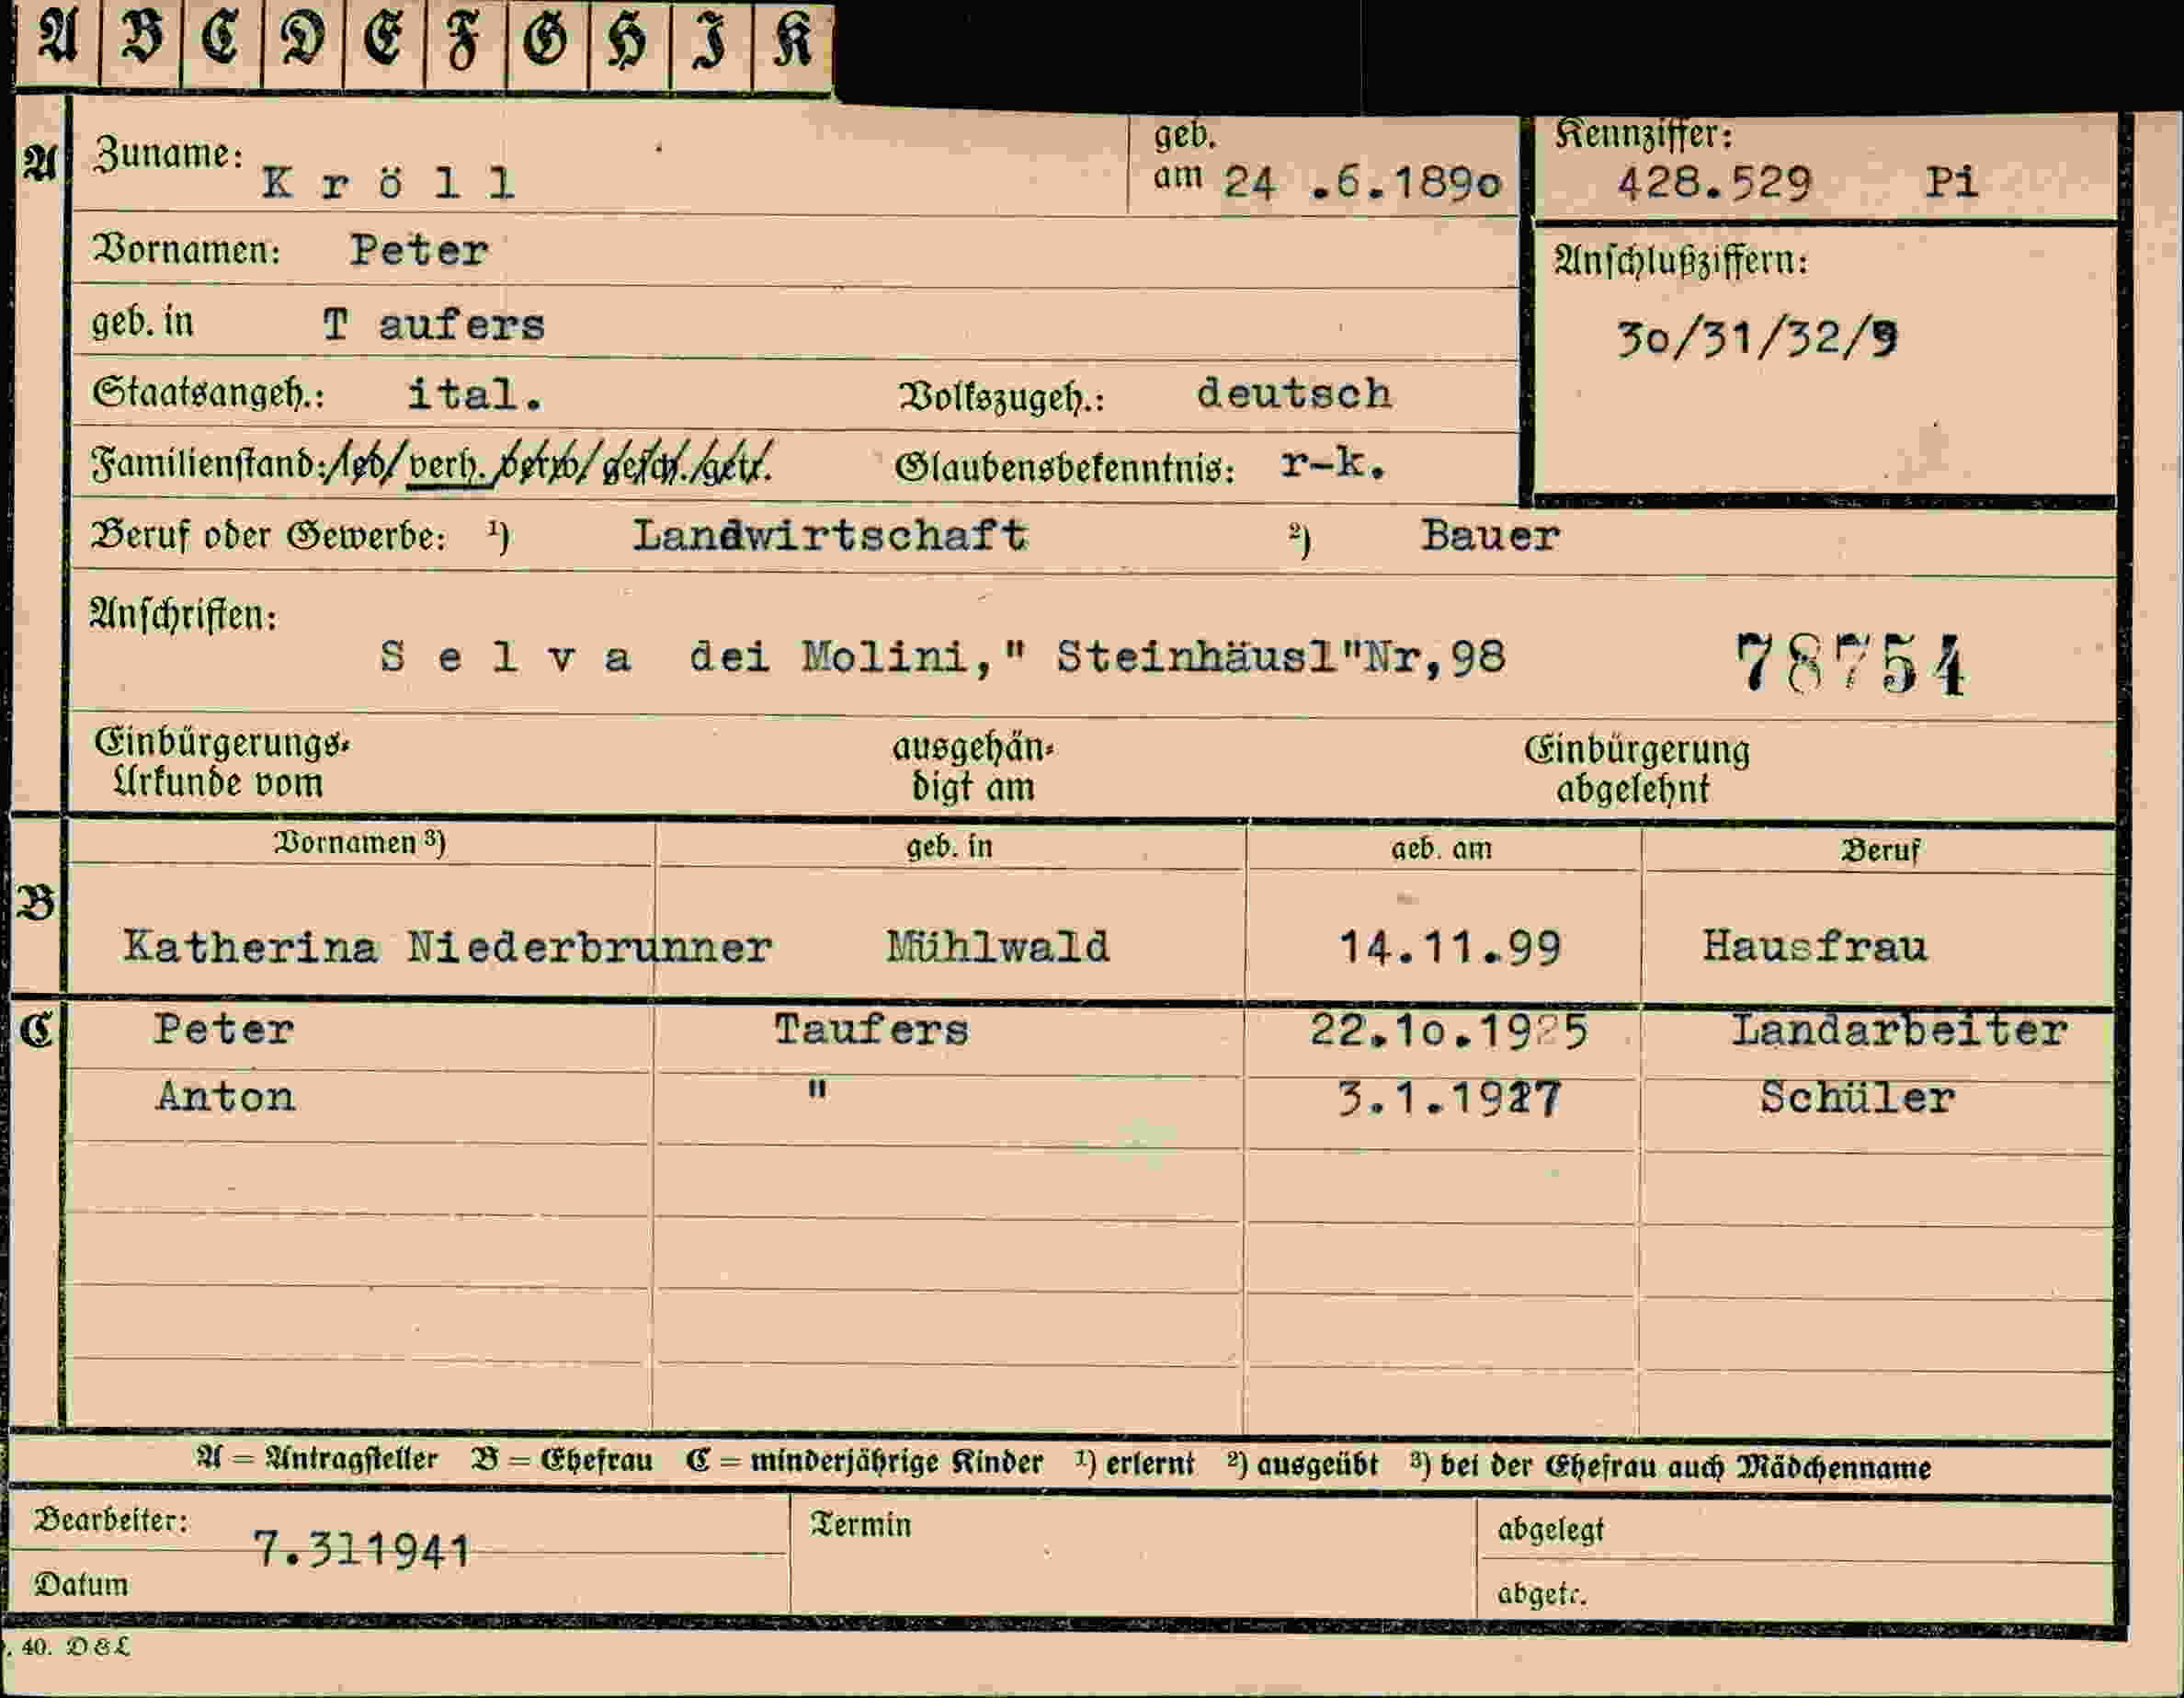 A B C D E F G H I K
A
Zuname: K r ö l l
geb. am 24 .6.189o
Kennziffer: 428.529 Pi
Vornamen: Peter
Anschlußziffern:
30/31/32/9
geb. in T aufers
Staatsangeh.: ital. Volkszugeh.: deutsch
Familienstand: led/ verh. verw/ gesch./getr. Glaubensbekenntnis: r-k.
Beruf oder Gewerbe: ¹) Landwirtschaft ²) Bauer
Anschriften:
S e l v a dei Molini," Steinhäusl"Nr,98 78754
Einbürgerungs-
Urkunde vom
ausgehän-
digt am
Einbürgerung
abgelehnt
Vornamen ³) geb. in geb. am Beruf
B
Katherina Niederbrunner Mühlwald 14.11.99 Hausfrau
C Peter Taufers 22.1o.1925 Landarbeiter
Anton " 3.1.1927 Schüler
A = Antragsteller B = Ehefrau C = minderjährige Kinder ¹) erlernt ²) ausgeübt ³) bei der Ehefrau auch Mädchenname
Bearbeiter: 7.311941
Datum
Termin
abgelegt
abgetr.
. 40. D&L